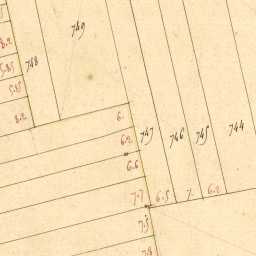 749
8.2
748
5.85
5.85
8.2
6.
6.2
747
746
745
744
6.6
7.7
6.5
7.
6.2
7.5
7.8